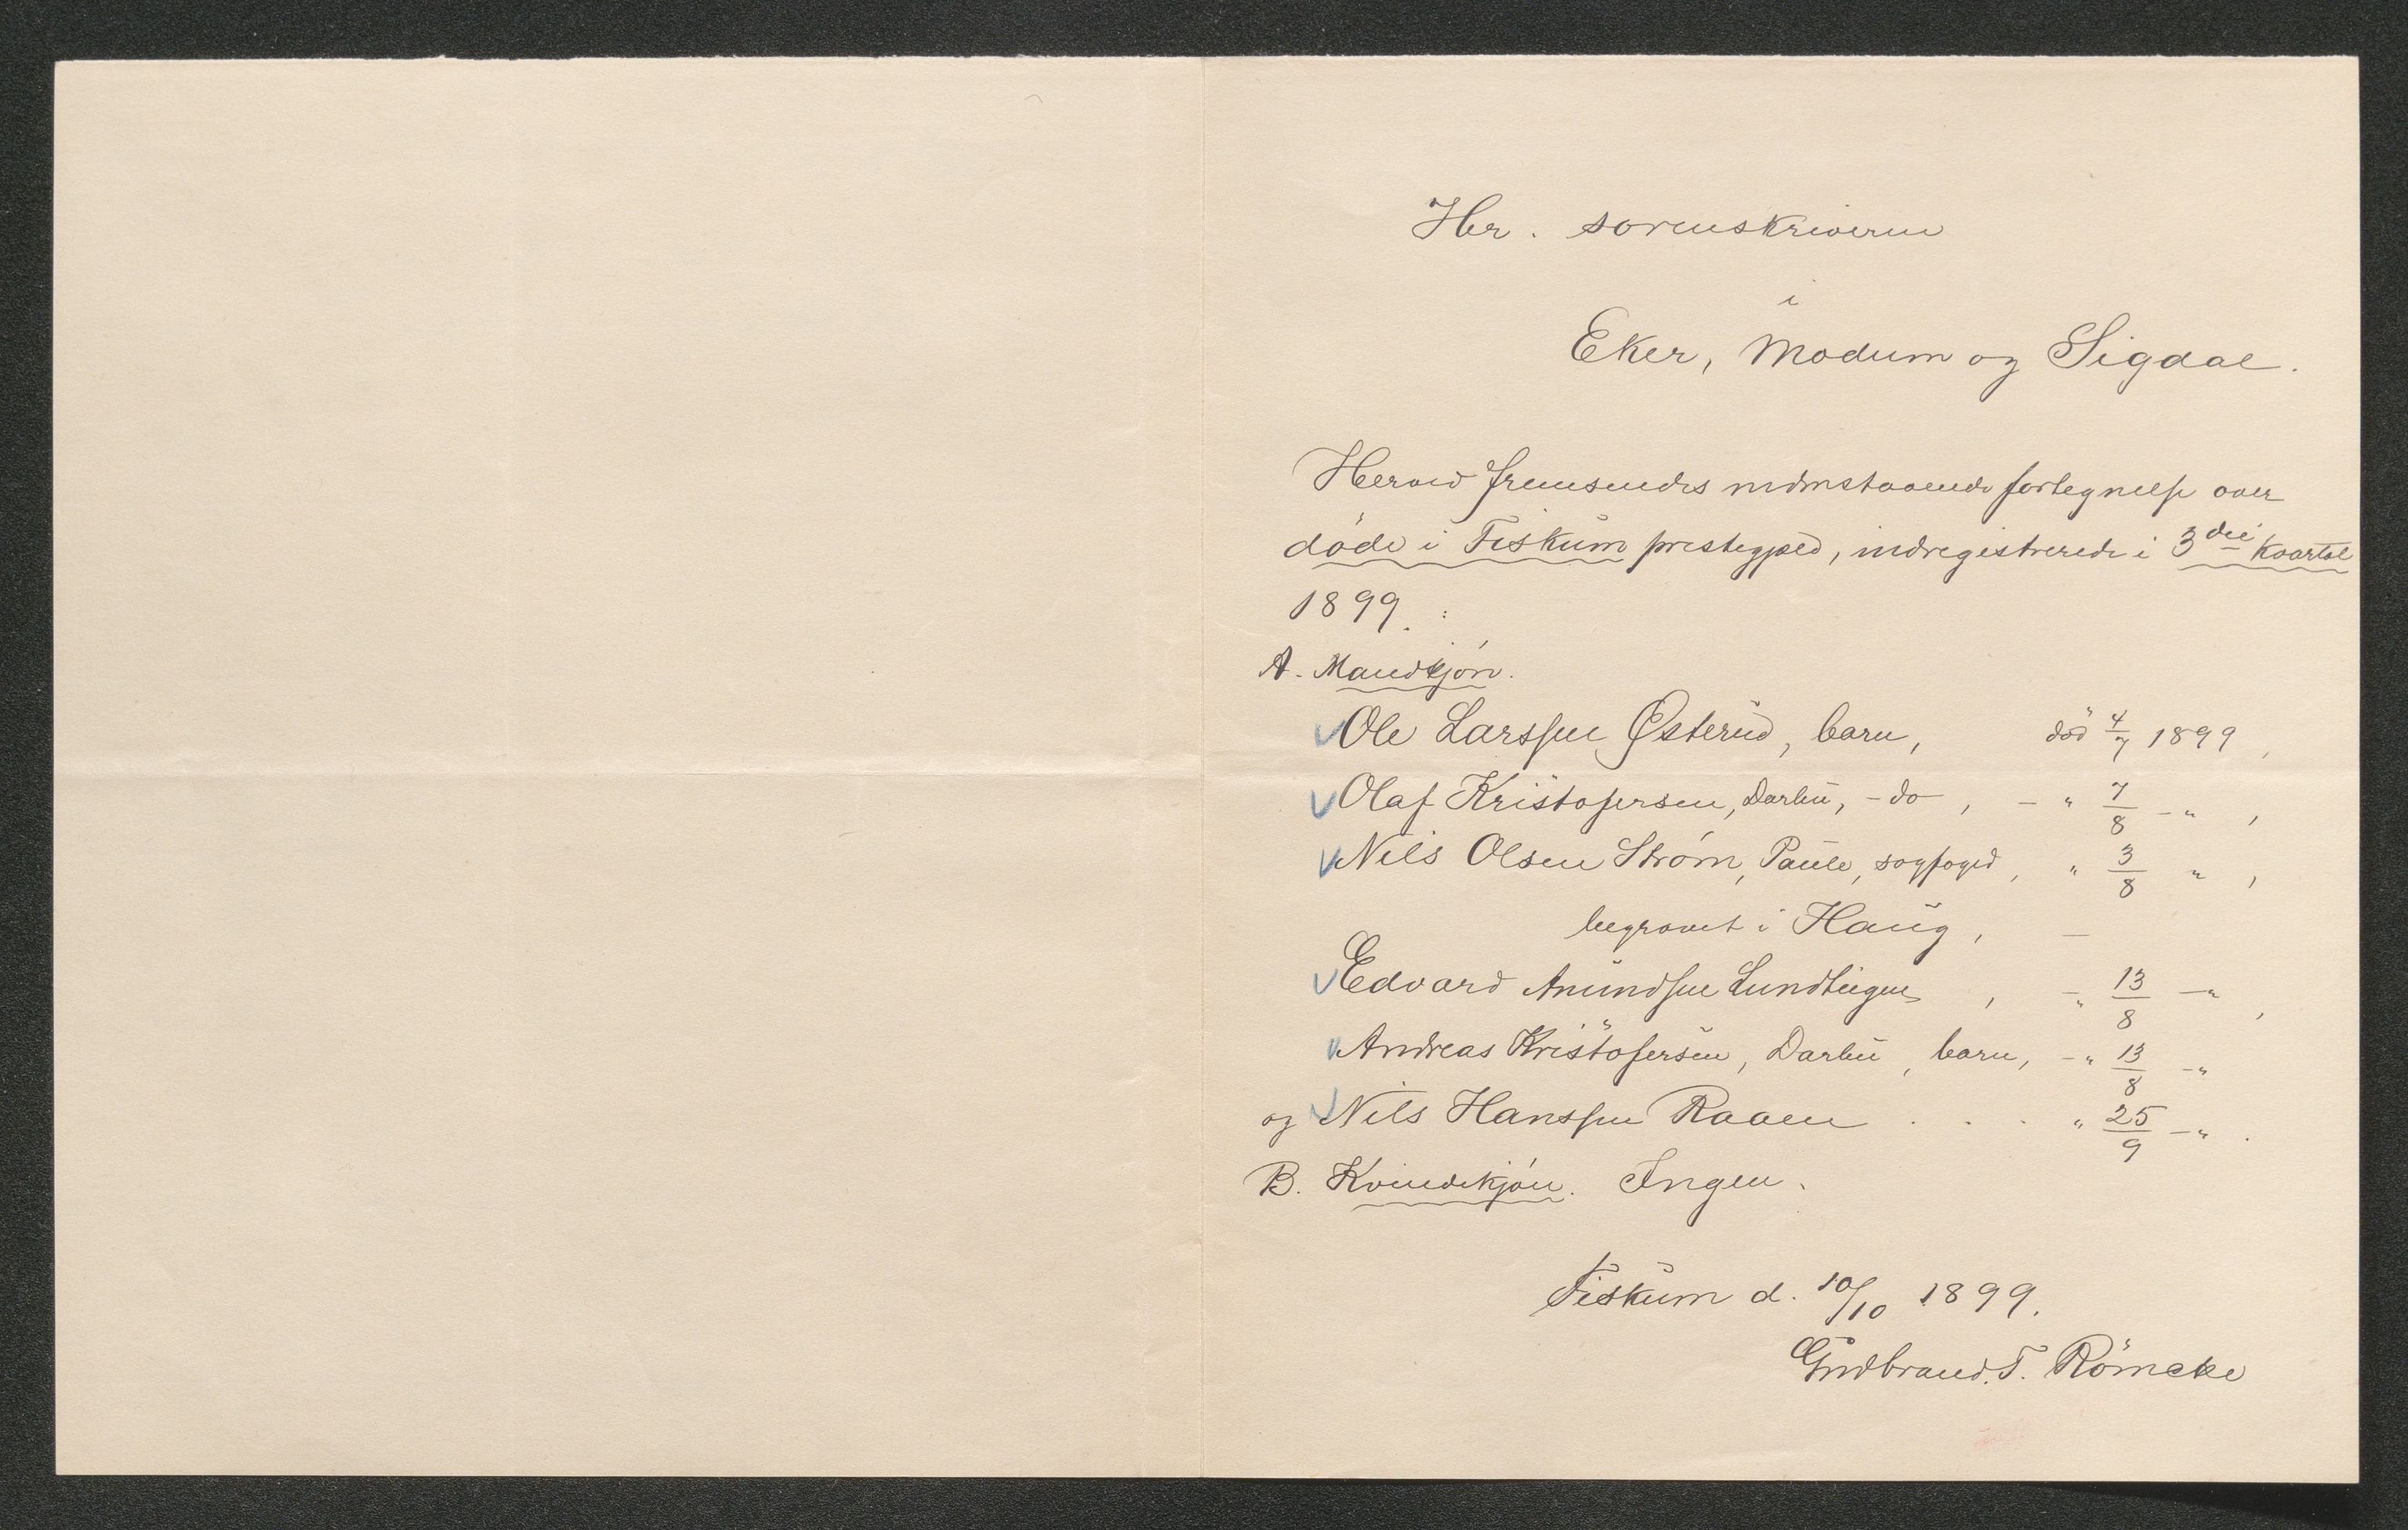 Hr. sorenskriveren
i
Eker, Modum og Sigdal.
Herved fremsendes nedenstaaende fortegnelse over
døde i Fiskum prestegjeld, indregistrerede i 3die kvartal
1899.:
A. Mandkjøn.
Ole Larssen Østerud, barn, död 4/7 1899,
Olaf Kristofersen, Darbu, -do-, - " 7/8 - " ,
Nils Olsen Strøm, Paule, sagfoged, " 3/8 " ,
begravet i Haug, -
Edvard Amundsen Lundteigen, - " 13/8 - " ,
Andreas Kristofersen, Darbu, barn, - " 13/8 - "
og Nils Hanssen Raaen . . . " 25/9 - " .
B. Kvindekjøn. Ingen.
Fiskum d. 10/10 1899.
Gudbrand. T. Römcke